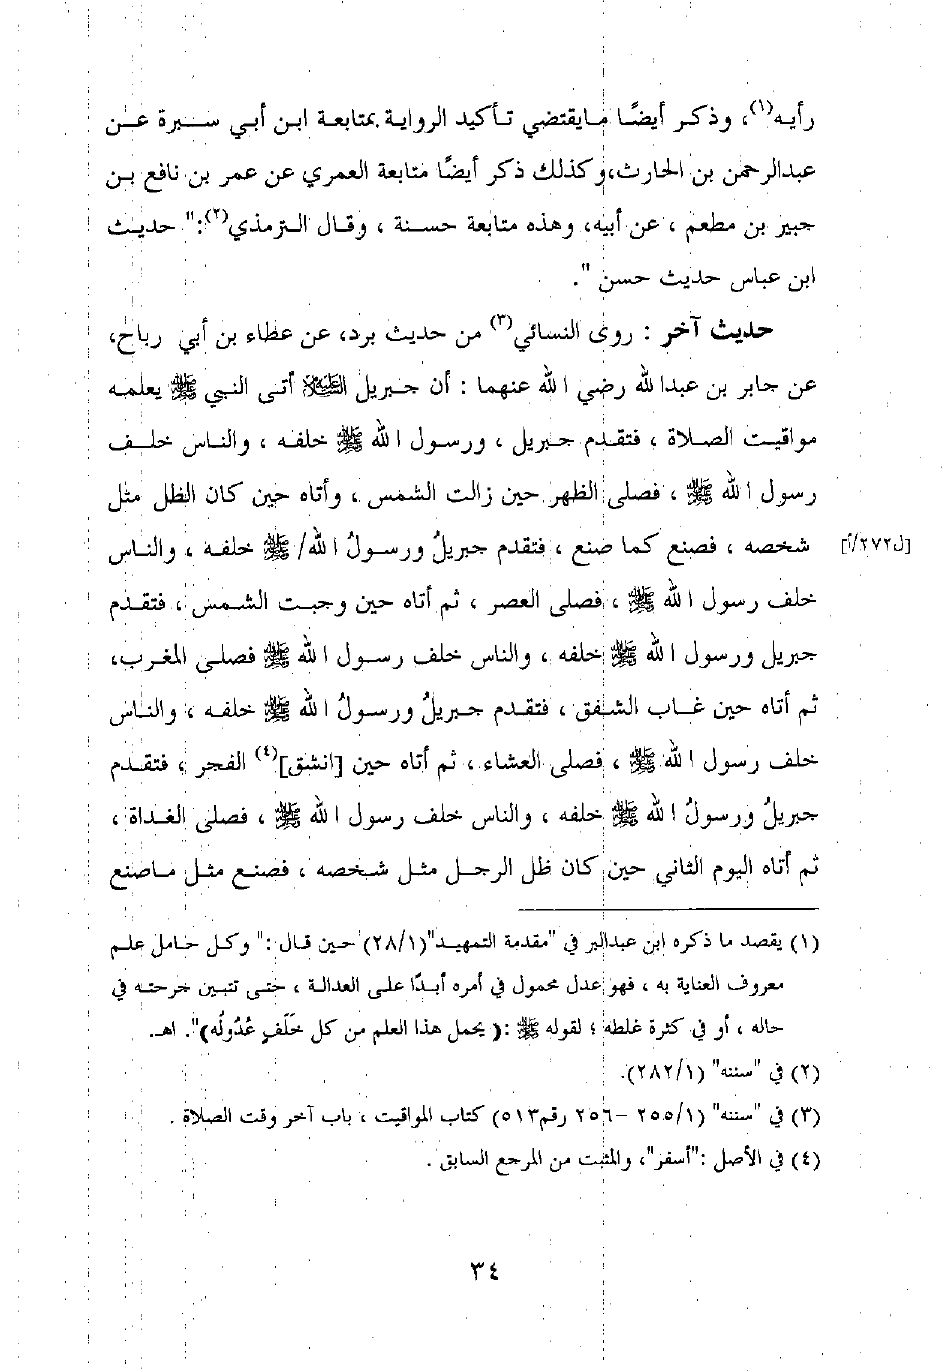 رأيه(١)، وذكر أيضًا مايقتضي تأكيد الرواية بمتابعة ابن أبي سبرة عن
عبدالرحمن بن الحارث، وكذلك ذكر أيضًا متابعة العمري عن عمر بن نافع بن
جبير بن مطعم ، عن أبيه، وهذه متابعة حسنة ، وقال الترمذي(٢):" حديث
ابن عباس حديث حسن ".
حديث آخر : روى النسائي(٣) من حديث برد، عن عطاء بن أبي رباح،
عن جابر بن عبدالله رضي الله عنهما : أن جبريل العَلَيْهِ السَّلَام أتى النبي ﷺ يعلمه
مواقيت الصلاة ، فتقدم جبريل ، ورسول الله ﷺ خلفه ، والناس خلف
رسول الله ﷺ ، فصلى الظهر حين زالت الشمس ، وأتاه حين كان الظل مثل
شخصه ، فصنع كما صنع ، فتقدم جبريلُ ورسولُ الله/ ﷺ خلفه ، والناس [ل٢٧٢/أ]
خلف رسول الله ﷺ ، فصلى العصر ، ثم أتاه حين وجبت الشمس ، فتقدم
جبريل ورسول الله ﷺ خلفه ، والناس خلف رسول الله ﷺ فصلى المغرب،
ثم أتاه حين غاب الشفق ، فتقدم جبريلُ ورسولُ الله ﷺ خلفه ، والناس
خلف رسول الله ﷺ ، فصلى العشاء ، ثم أتاه حين [انشق](٤) الفجر ، فتقدم
جبريلُ ورسولُ الله ﷺ خلفه ، والناس خلف رسول الله ﷺ ، فصلى الغداة ،
ثم أتاه اليوم الثاني حين كان ظل الرجل مثل شخصه ، فصنع مثل ماصنع
(١) يقصد ما ذكره ابن عبدالبر في "مقدمة التمهيد"(٢٨/١) حين قال :" وكل حامل علم
معروف العناية به ، فهو عدل محمول في أمره أبدًا على العدالة ، حتى تتبين جرحته في
حاله ، أو في كثرة غلطه ؛ لقوله ﷺ :( يحمل هذا العلم من كل خَلَفٍ عُدُولُه)". اهـ.
(٢) في "سننه" (٢٨٢/١).
(٣) في "سننه" (٢٥٥/١ -٢٥٦ رقم٥١٣) كتاب المواقيت ، باب آخر وقت الصلاة .
(٤) في الأصل :"أسفر"، والمثبت من المرجع السابق .
٣٤